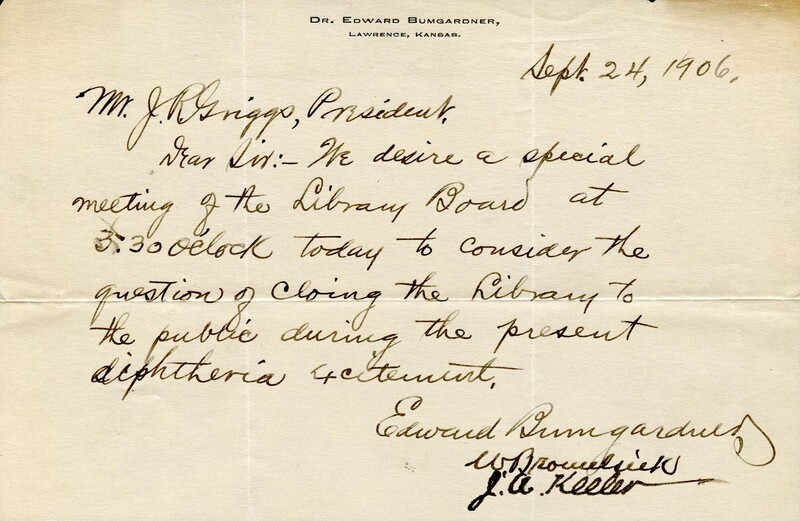 Dr. Edward Bumgardner,
Lawrence, Kansas.
Sept. 24, 1906.
Mr. J. R. Griggs, President.
Dear Sir:- We desire a special
meeting of the Library Board at
3.30 o'clock today to consider the
question of cloing the Library to
the public during the present
diphtheria excitement.
Edward Bumgardner
W Bromelsick
J. A. Keeler